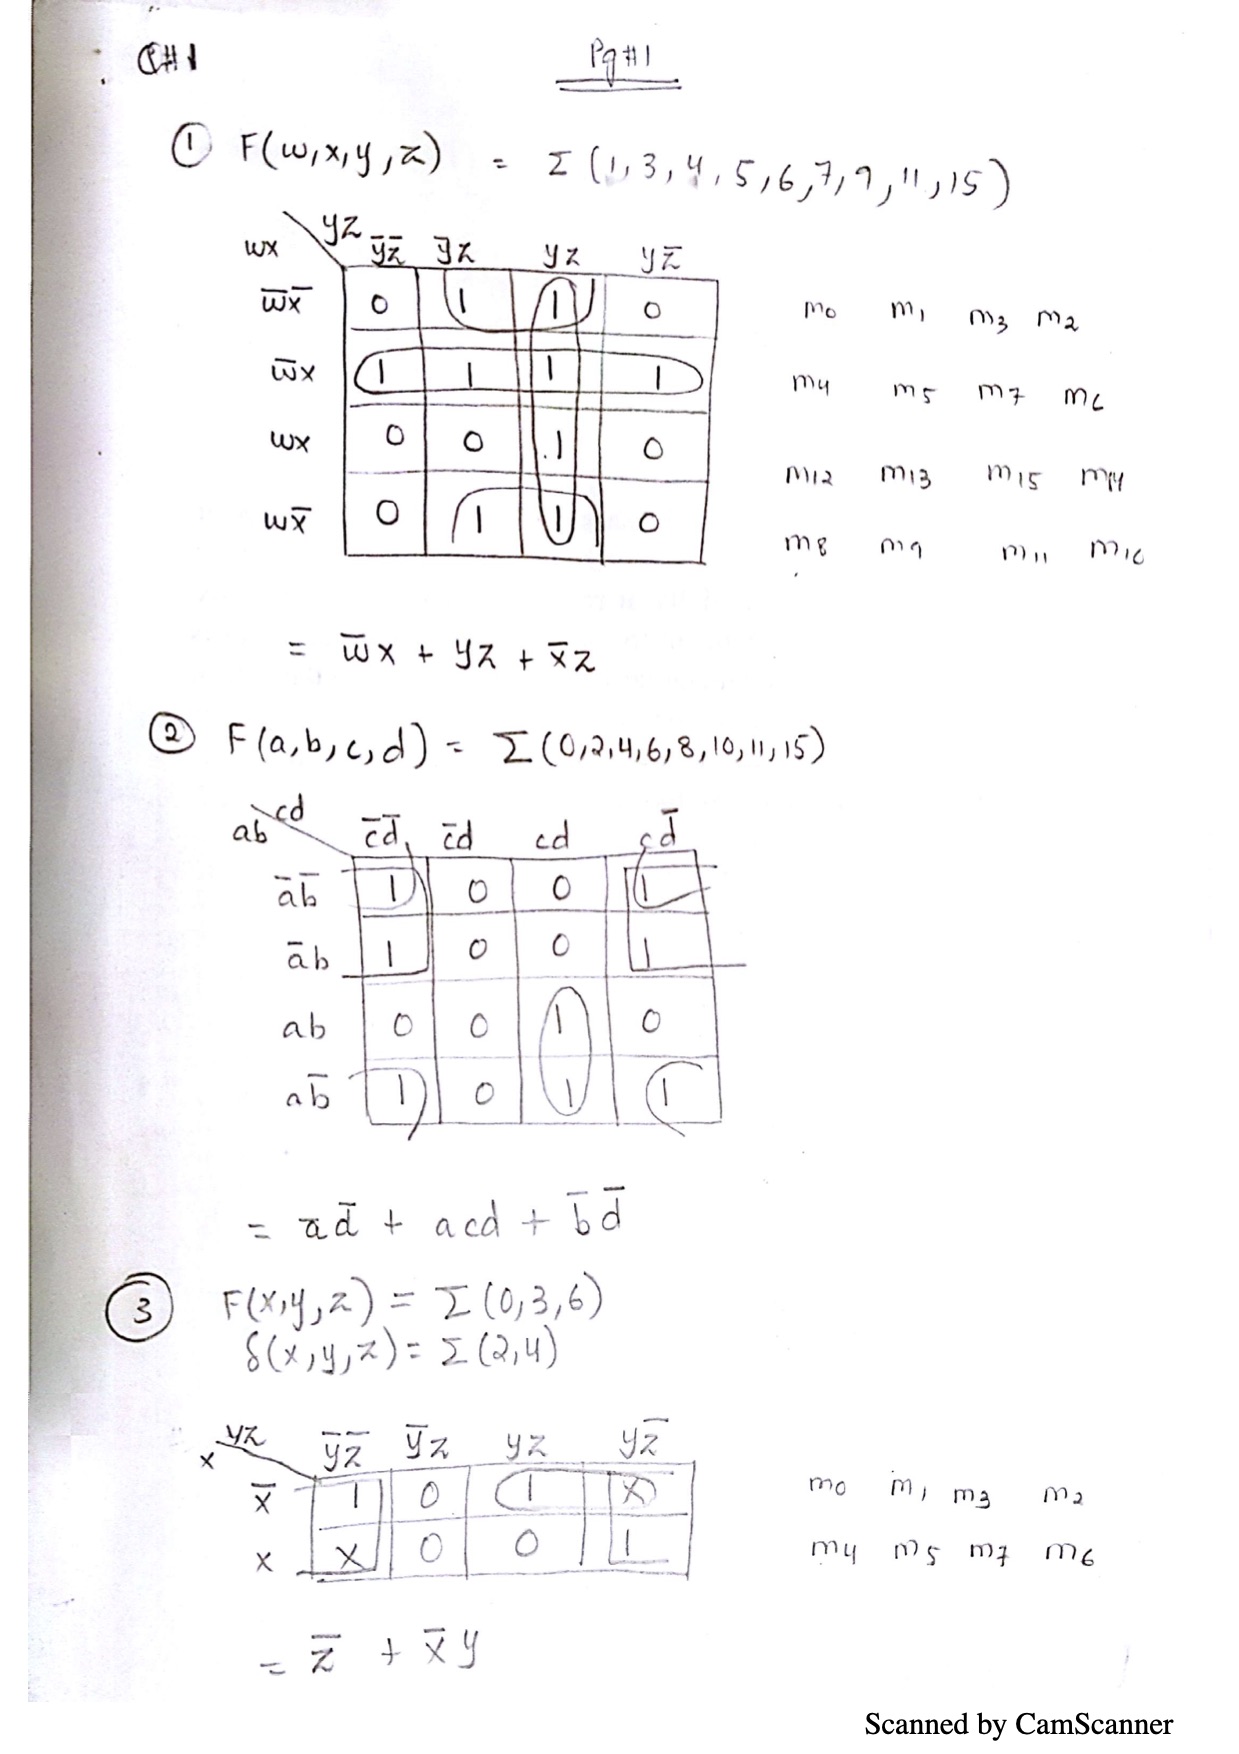 Q#1
Pg#1
① F(w,x,y,z) = Σ (1,3,4,5,6,7,9,11,15)
wx yz y̅z̅ y̅z yz yz̅
w̅x̅ 0 1 1 0 m0 m1 m3 m2
w̅x 1 1 1 1 m4 m5 m7 m6
wx 0 0 1 0 m12 m13 m15 m14
wx̅ 0 1 1 0 m8 m9 m11 m10
= w̅x + yz + x̅z
② F(a,b,c,d) = Σ(0,2,4,6,8,10,11,15)
ab cd c̅d̅ c̅d cd cd̅
a̅b̅ 1 0 0 1
a̅b 1 0 0 1
ab 0 0 1 0
ab̅ 1 0 1 1
= a̅d̅ + acd + b̅d̅
③ F(x,y,z) = Σ(0,3,6)
δ(x,y,z) = Σ(2,4)
x yz y̅z̅ y̅z yz yz̅
x̅ 1 0 1 x m0 m1 m3 m2
x x 0 0 1 m4 m5 m7 m6
= z̅ + x̅y
Scanned by CamScanner